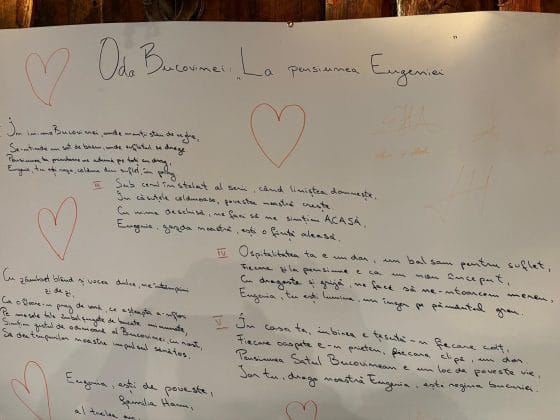 Oda Bucovinei: "La pensiunea Eugeniei"
În inima Bucovinei, unde munții stau de veghe,
Se-ntinde un sat de basm, unde sufletul se drege
Pensiunea ta primitoare ne adună pe toți cu drag,
Eugenia, tu ești raza, coldura din suflet, în prag
II Sub cerul înstelat al serii, când liniștea domnește,
În căsuțele călduroase, povestea noastră crește.
Cu inima deschisă, ne faci să ne simțim ACASĂ,
Eugenia, gazda noastră, ești o ființă aleasă.
Cu zâmbet blând și vocea dulce, ne întâmpini
zi de zi,
Ca o floare-n prag de vară, ce așteaptă a-nflori
Pe mesele tale bucate minunate,
Simțim gustul de odinioară al Bucovinei, cu rost,
Se deștempturilor noastre impulsul sănătos.
IV Ospitalitatea ta e un dar, un balsam pentru suflet,
Fiecare zi la pensiune e ca un nou început,
Cu dragoste și grijă, ne faci să ne-ntoarcem mereu,
Eugenia, tu ești lumina, un înger pe pământul greu.
V În casa ta, iubirea e țesută-n fiecare colț,
Fiecare oaspete e-n prieten, fiecare clipă, un dar.
Pensiunea Satul Bucovinean e un loc de poveste vie,
Iar tu, draga noastră Eugenia, ești regina bucuriei.
Eugenia, ești de poveste,
familia Haru,
al treilea an